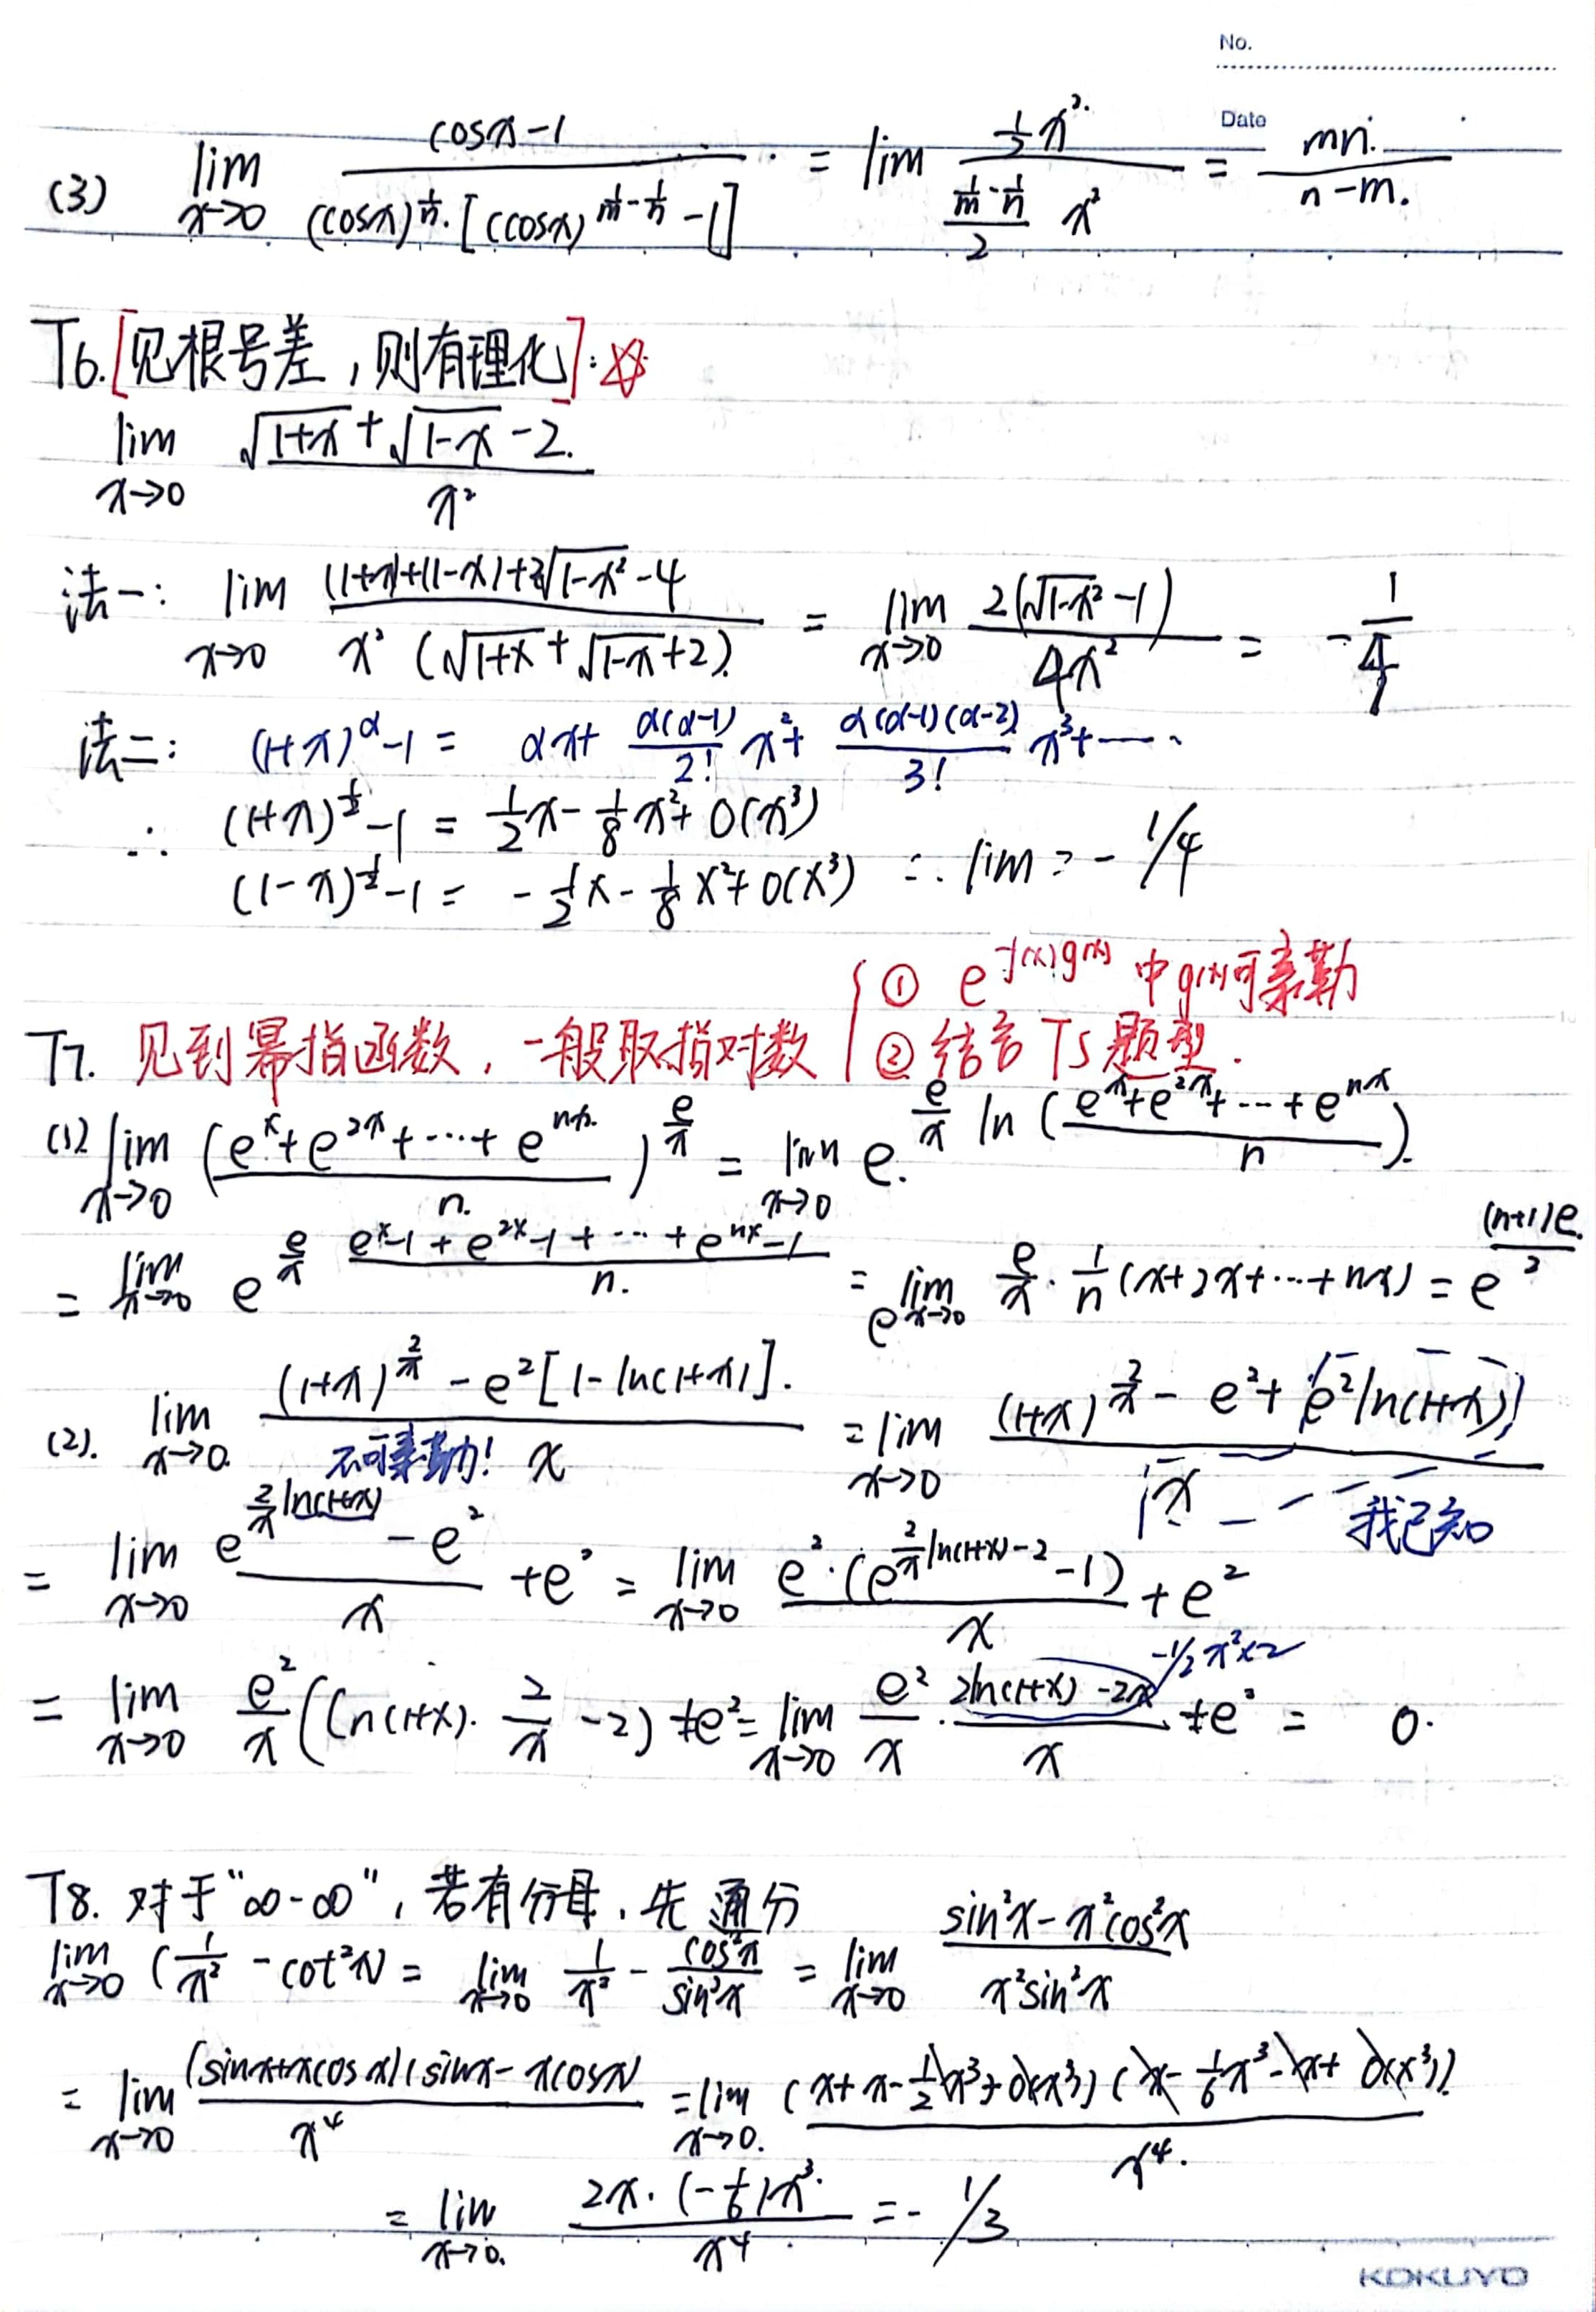 No.
Date
(3) lim x→0 (cosx-1)/((cosx)^(1/n)·[(cosx)^(1/m-1/n)-1]) = lim (1/2 x²)/(((1/m-1/n)/2) x²) = mn/(n-m).
T6.[见根号差,则有理化]:☆
lim x→0 (√(1+x)+√(1-x)-2.)/x²
法一: lim x→0 ((1+x)+(1-x)+2√(1-x²)-4)/(x²(√(1+x)+√(1-x)+2)) = lim x→0 2(√(1-x²)-1)/(4x²) = -1/4
法二: (1+x)^α-1 = αx+ (α(α-1)/2!) x²+ (α(α-1)(α-2)/3!) x³+……
∴ (1+x)^(1/2)-1 = 1/2x-1/8x²+O(x³)
(1-x)^(1/2)-1 = -1/2x-1/8x²+O(x³) ∴ lim = -1/4
① e^(f(x)g(x)) 中g(x)可泰勒
T7. 见到幂指函数,一般取指对数 { ② 结合 T5题型.
(1). lim x→0 ((e^x+e^(2x)+…+e^(nx))/n.)^(e/x) = lim x→0 e^((e/x) ln((e^x+e^(2x)+…+e^(nx))/n)).
= lim x→0 e^((e/x)·(e^x-1+e^(2x)-1+…+e^(nx)-1)/n.) = e^(lim x→0 (e/x)·(1/n)(x+2x+…+nx)) = e^((n+1)e/2)
(2). lim x→0 ((1+x)^(2/x)-e²[1-ln(1+x)].)/x = lim x→0 ((1+x)^(2/x)-e²+e²ln(1+x))/x
不可泰勒!
我已知
= lim x→0 (e^((2/x)ln(1+x))-e²)/x +e² = lim x→0 (e²·(e^((2/x)ln(1+x)-2)-1))/x +e²
-1/2 x²×2
= lim x→0 (e²/x)(ln(1+x)·(2/x)-2)+e² = lim x→0 (e²/x)·(2ln(1+x)-2x)/x +e² = 0.
T8. 对于"∞-∞",若有分母,先通分
lim x→0 (1/x²-cot²x) = lim x→0 1/x²-cos²x/sin²x = lim x→0 (sin²x-x²cos²x)/(x²sin²x)
= lim x→0 ((sinx+xcosx)(sinx-xcosx))/x⁴ = lim x→0. ((x+x-1/2x³+o(x³))(x-1/6x³-x+o(x³)))/x⁴.
= lim x→0. (2x·(-1/6)x³.)/x⁴ = -1/3
KOKUYO